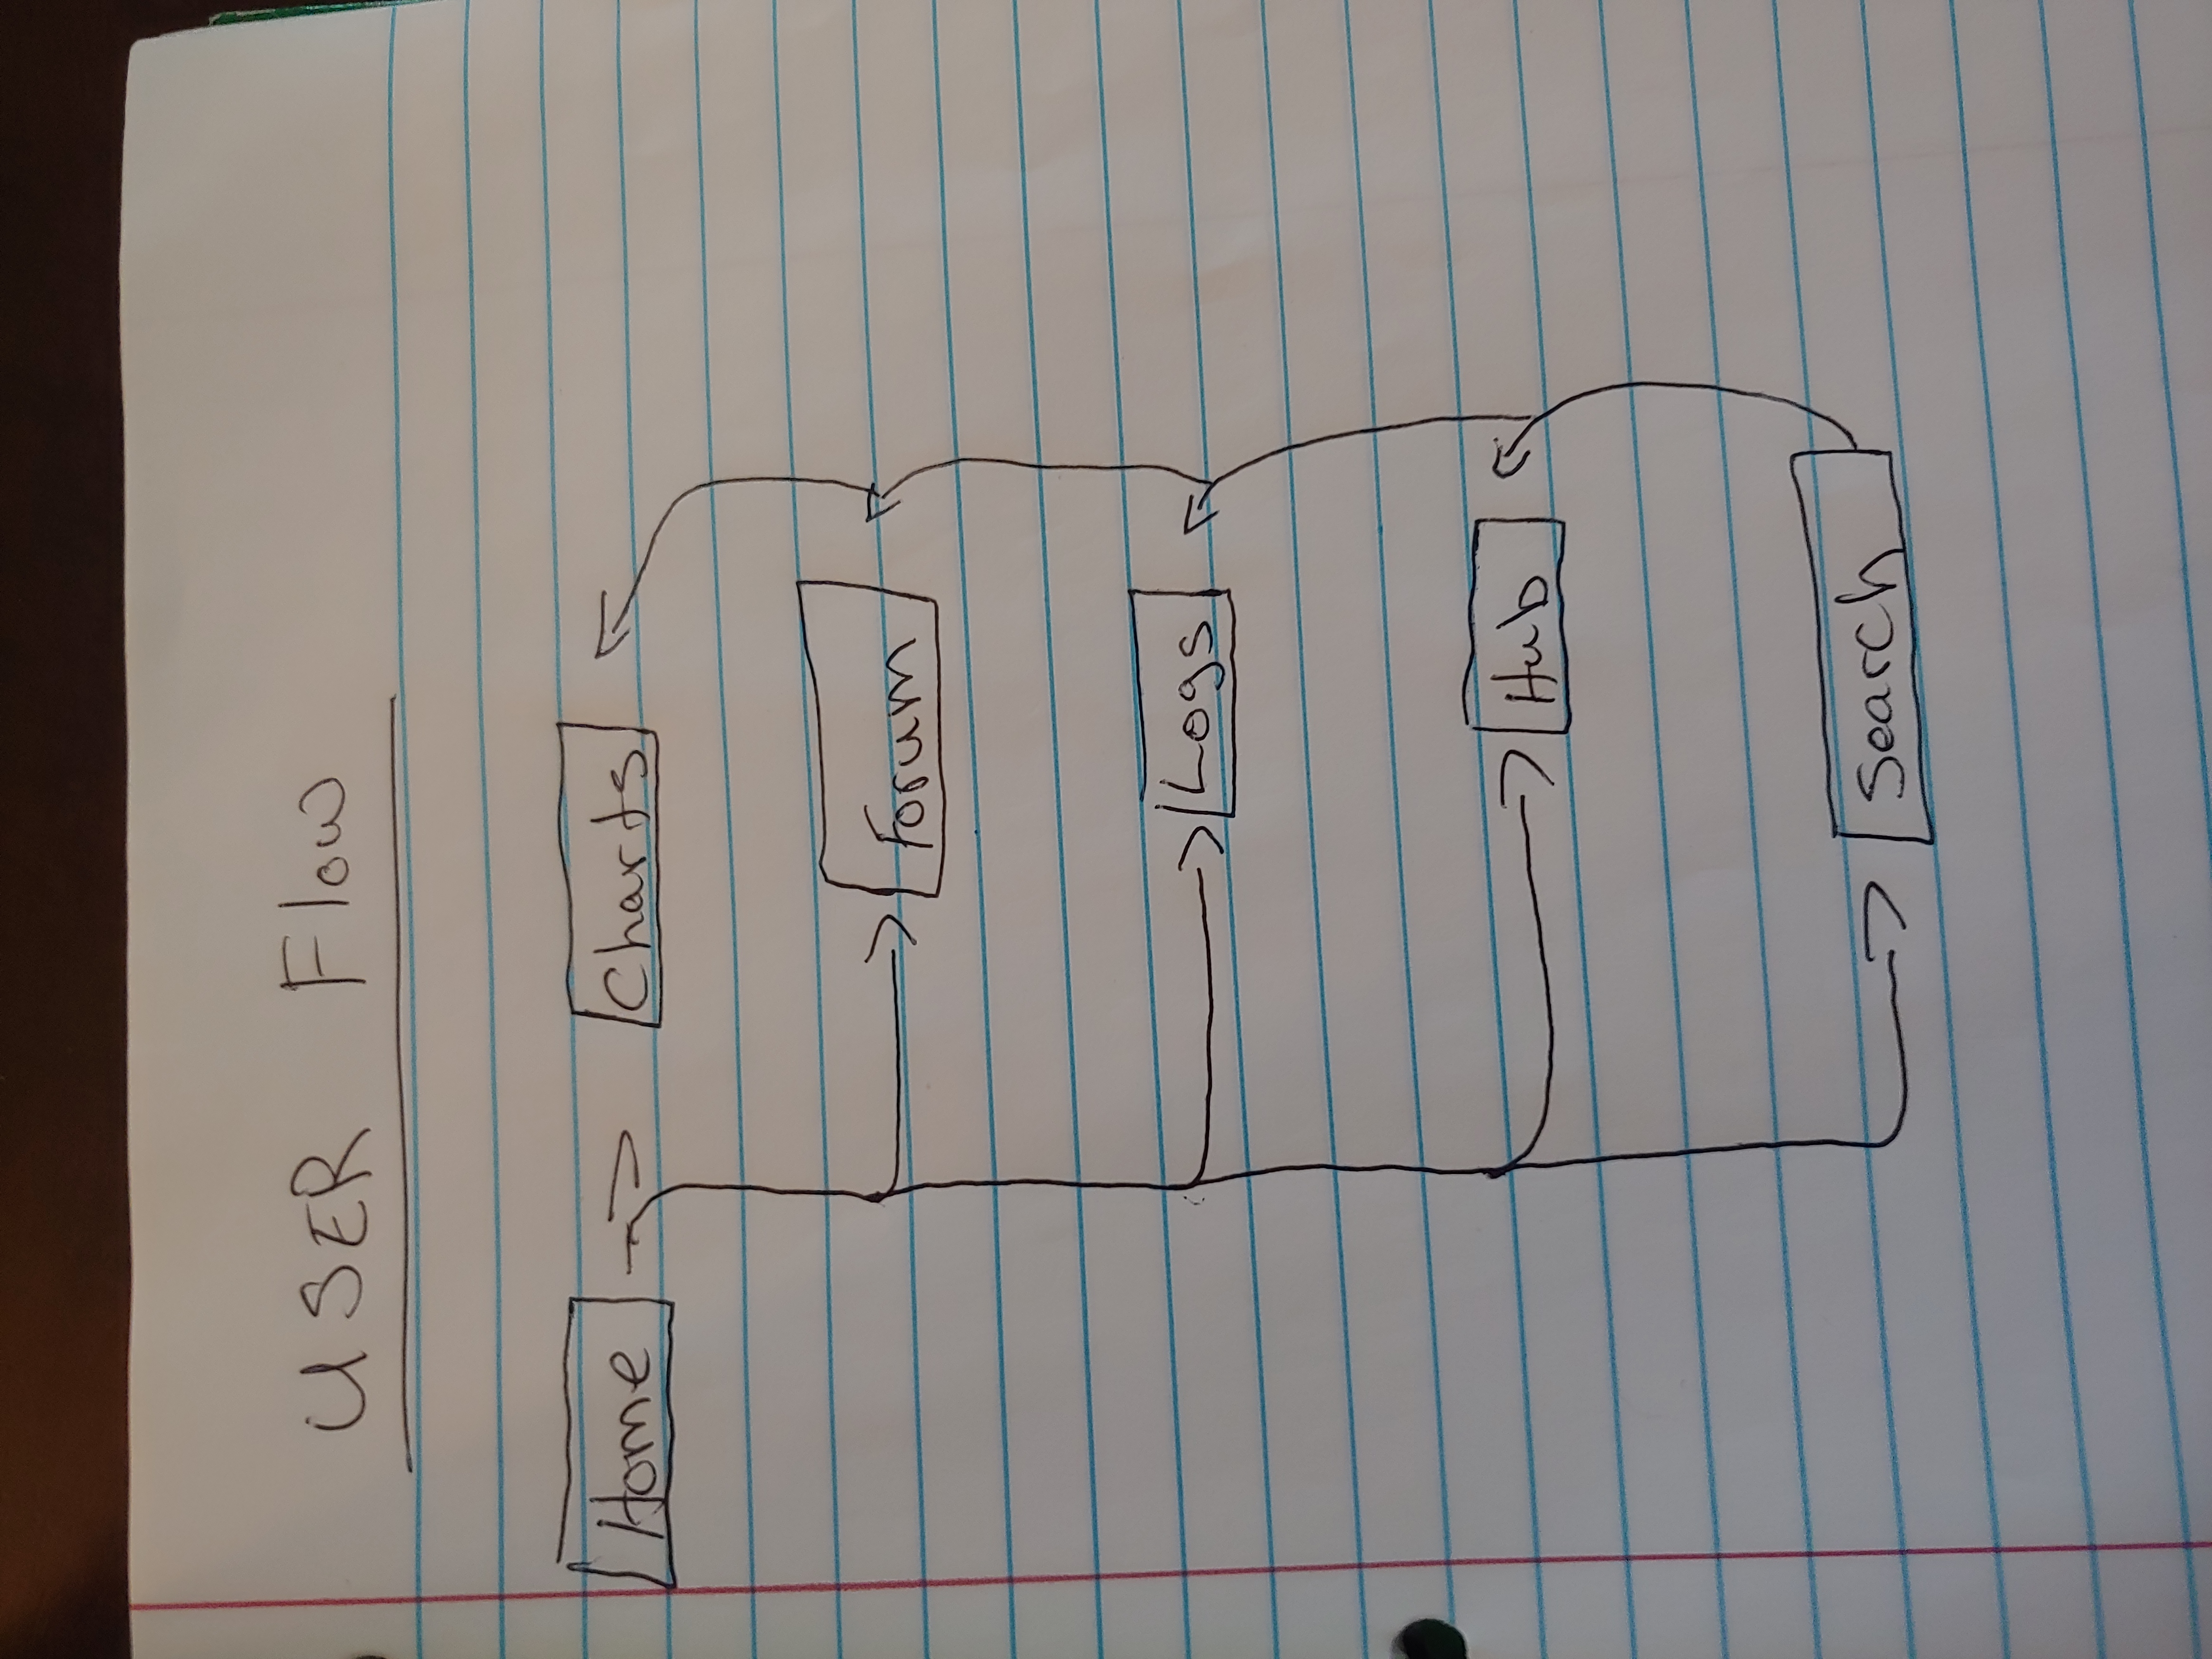 USER Flow
Home Charts
Forum
Logs
Hub
Search